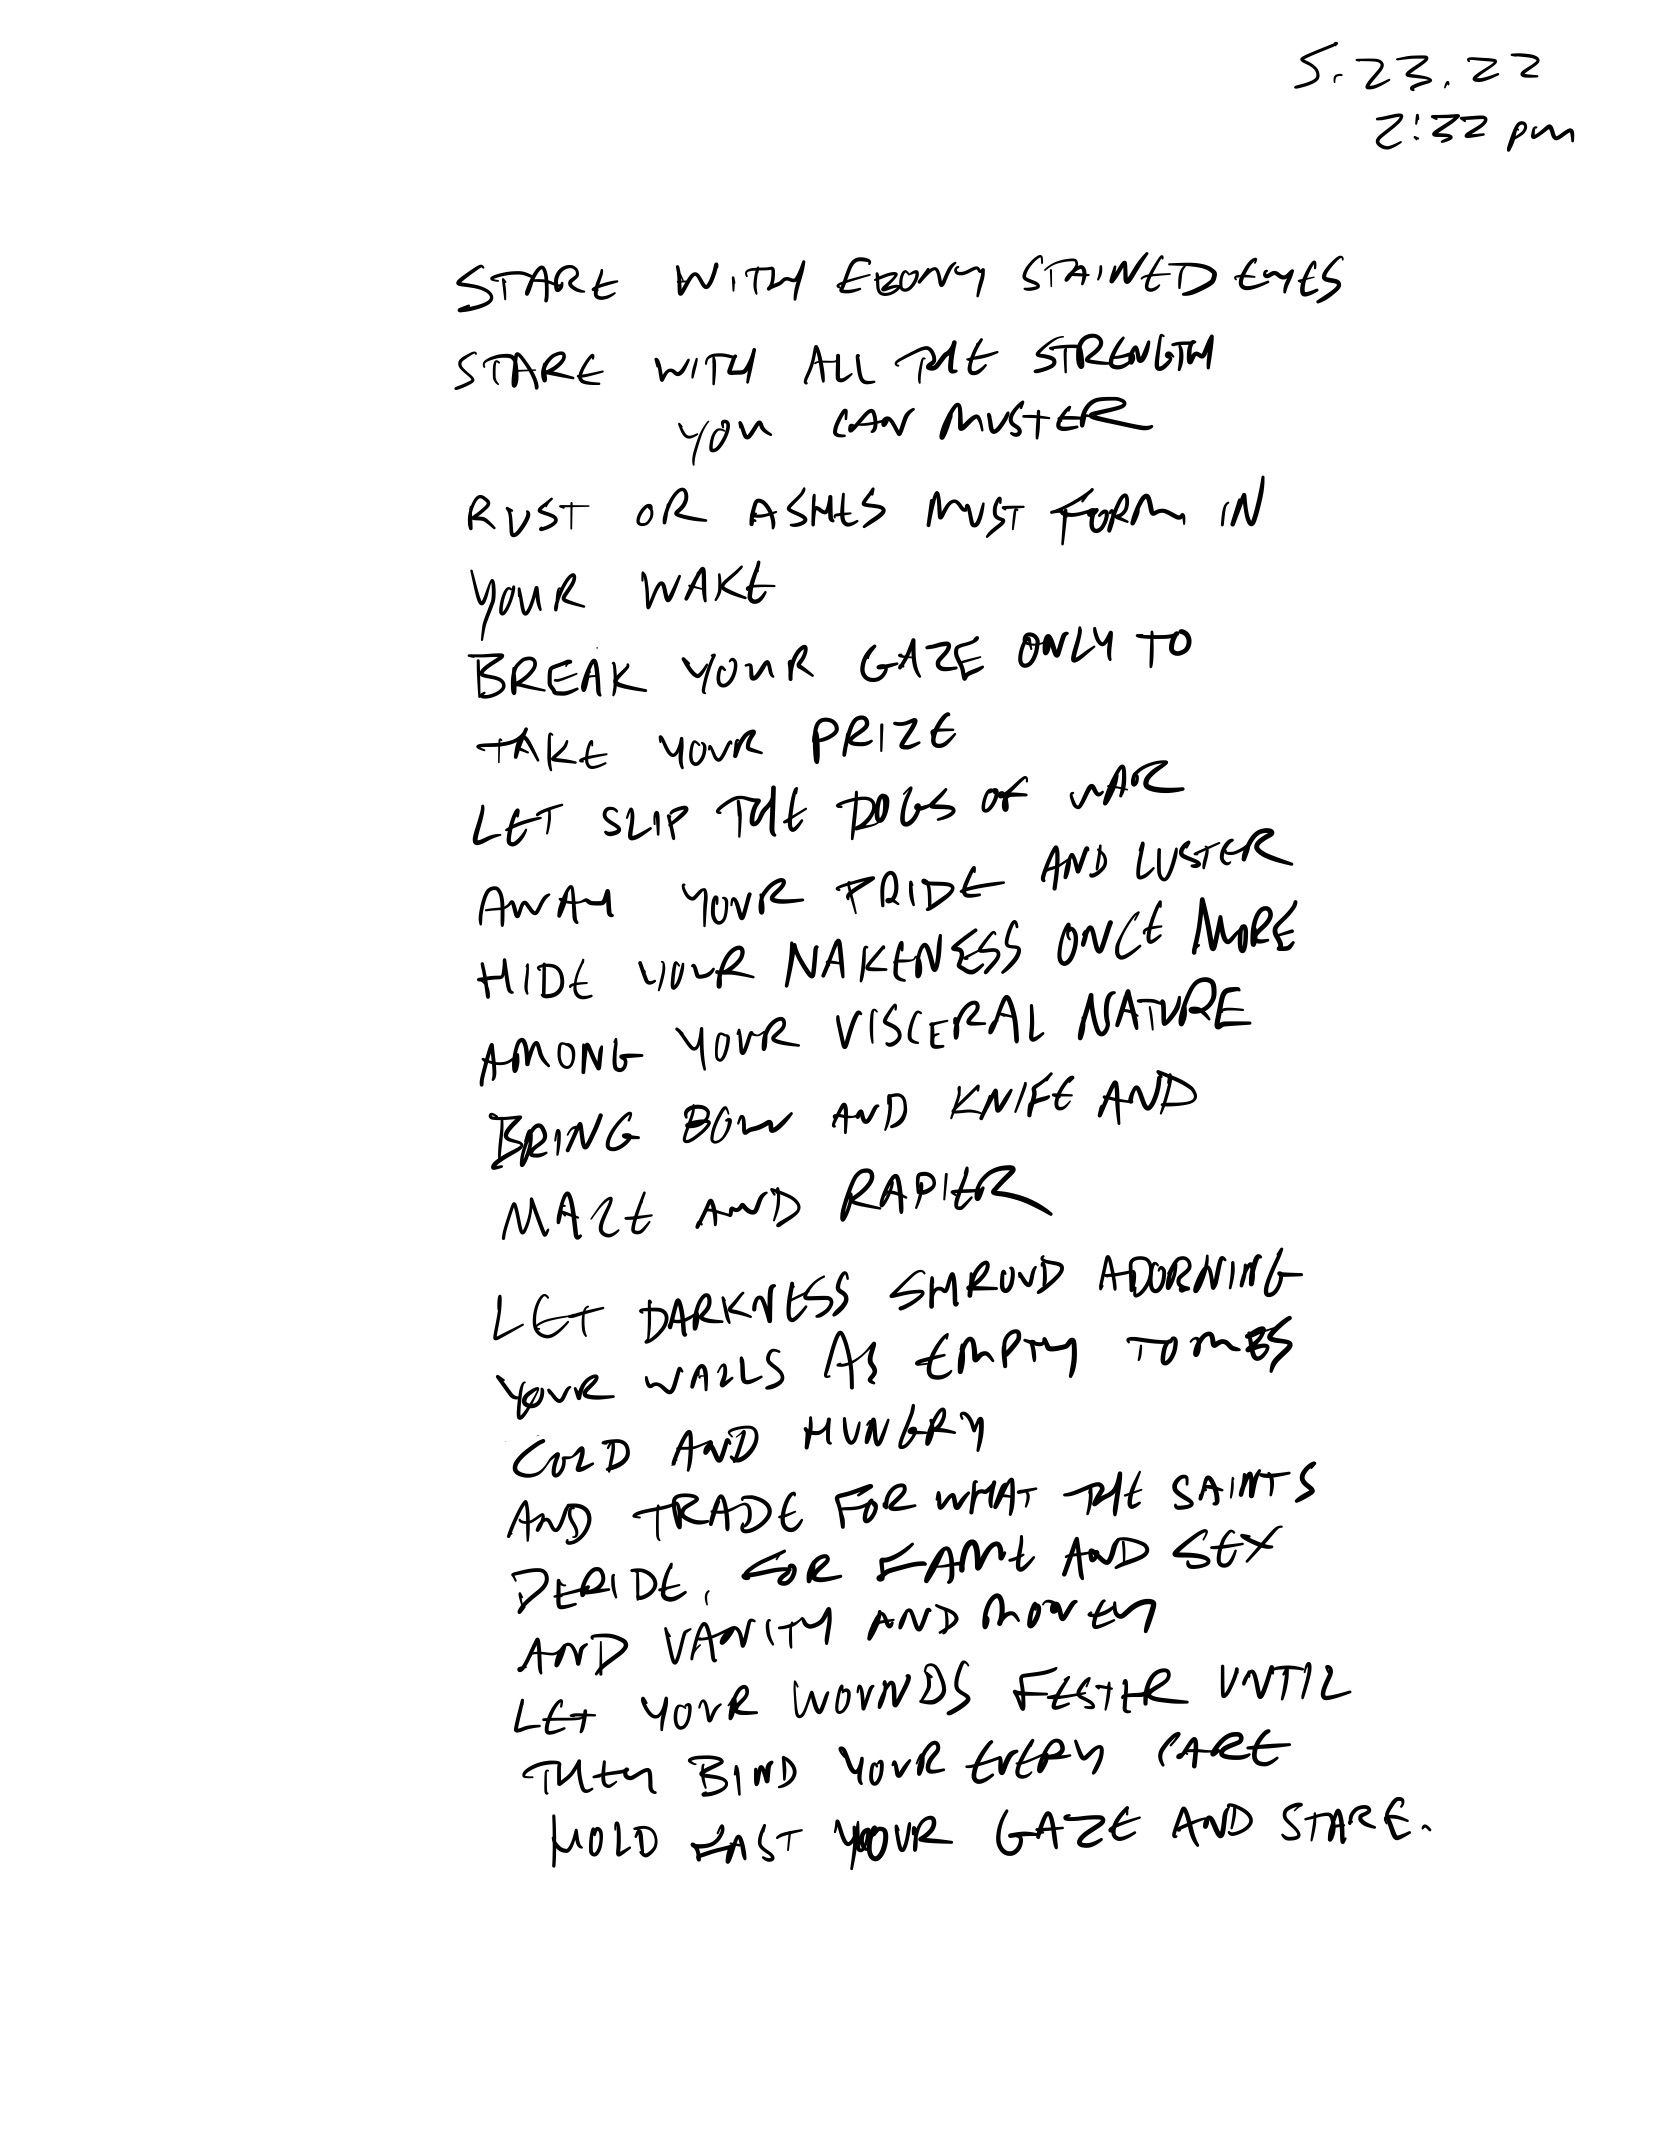 5.23.22
2:32 pm
STARE WITH EBONY STAINED EYES
STARE WITH ALL THE STRENGTH
YOU CAN MUSTER
RUST OR ASHES MUST FORM IN
YOUR WAKE
BREAK YOUR GAZE ONLY TO
TAKE YOUR PRIZE
LET SLIP THE DOGS OF WAR
AWAY YOUR PRIDE AND LUSTER
HIDE YOUR NAKENESS ONCE MORE
AMONG YOUR VISCERAL NATURE
BRING BOW AND KNIFE AND
MAZE AND RAPIER
LET DARKNESS SHROUD ADORNING
YOUR WALLS AS EMPTY TOMBS
COLD AND HUNGRY
AND TRADE FOR WHAT THE SAINTS
DERIDE, FOR FAME AND SEX
AND VANITY AND MONEY
LET YOUR WOUNDS FESTER UNTIL
THEY BIND YOUR EVERY CARE
HOLD FAST YOUR GAZE AND STARE.